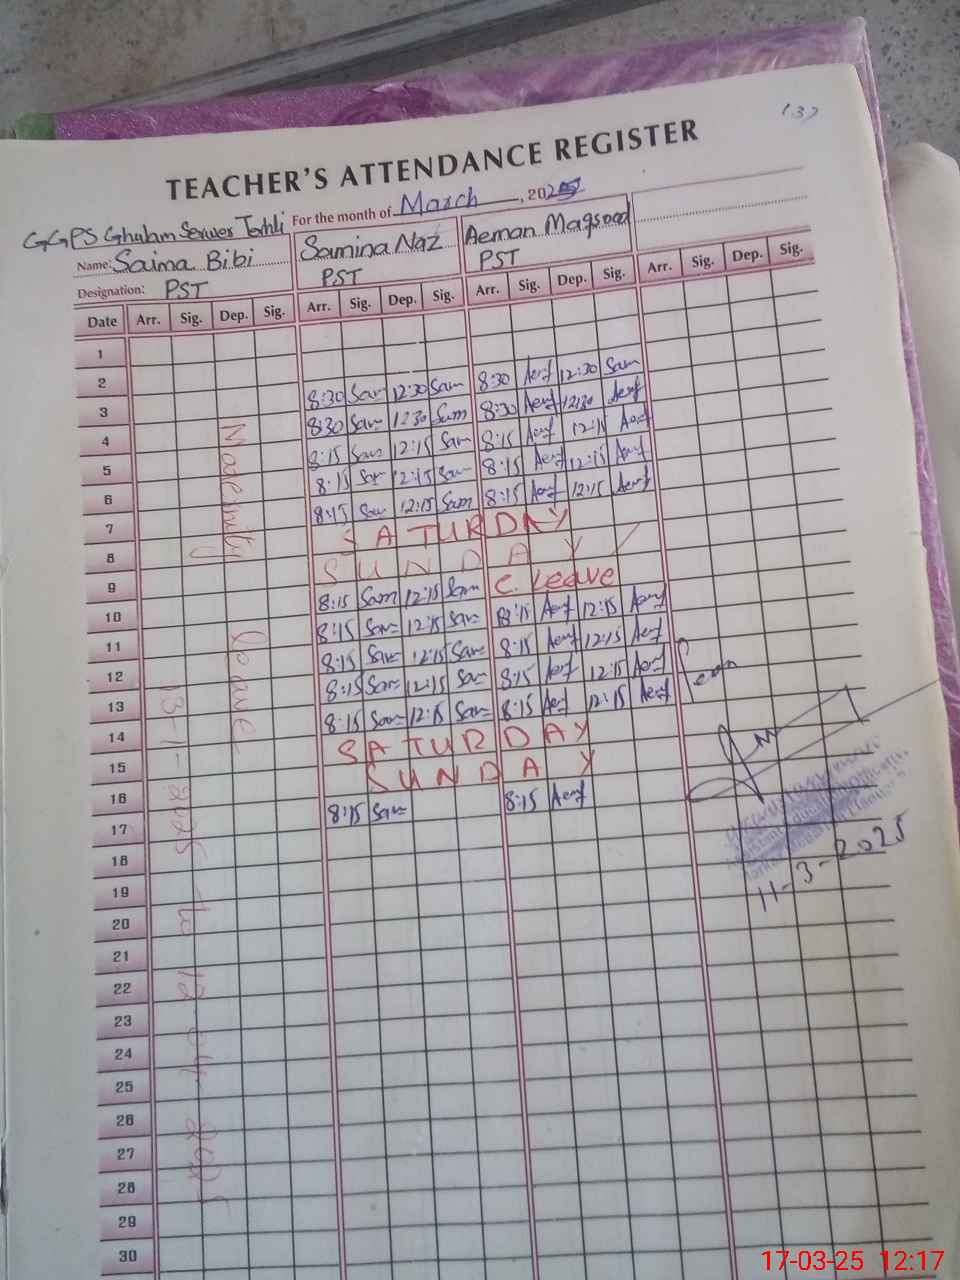 137
TEACHER'S ATTENDANCE REGISTER
For the month of March, 2025
GGPS Ghulam Serwer
Name: Saima Bibi Samina Naz Aeman Maqsood
Designation: PST PST PST
Date Arr. Sig. Dep. Sig. Arr. Sig. Dep. Sig. Arr. Sig. Dep. Sig. Arr. Sig. Dep. Sig.
1
2
8:30 Sam 12:30 Sam 8:30 Aemf 12:30 Sam
3
8:30 Sam 12:30 Sam 8:30 Aemf 12:30 Aemf
4
8:15 Sam 12:15 Sam 8:15 Aemf 12:15 Aemf
5
8:15 Sam 12:15 Sam 8:15 Aemf 12:15 Aemf
6
8:15 Sam 12:15 Sam 8:15 Aemf 12:15 Aemf
7
SATURDAY
8
SUNDAY
9
8:15 Sam 12:15 Sam C. Leave
10
8:15 Sam 12:15 Sam 8:15 Aemf 12:15 Aemf
11
8:15 Sam 12:15 Sam 8:15 Aemf 12:15 Aemf
12
8:15 Sam 12:15 Sam 8:15 Aemf 12:15 Aemf
13
8:15 Sam 12:15 Sam 8:15 Aemf 12:15 Aemf
14
SATURDAY
15
SUNDAY
16
8:15 Sam 8:15 Aemf
17
18
19
20
21
22
23
24
25
26
27
28
29
30
Maternity leave
13-1-2025 to 12-04-2025
Seen
11-3-2025
17-03-25 12:17